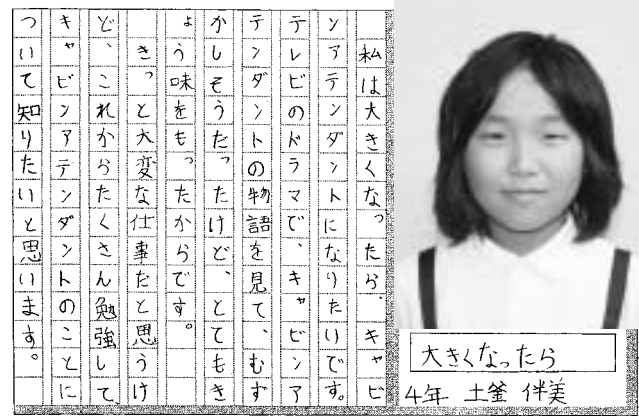 大きくなったら
4年 土釜 伴美
私は大きくなったら、キャビ
ンアテンダントになりたいです。
テレビのドラマで、キャビンア
テンダントの物語を見て、むず
かしそうだったけど、とてもき
ょう味をもったからです。
きっと大変な仕事だと思うけ
ど、これからたくさん勉強して、
キャビンアテンダントのことに
ついて知りたいと思います。